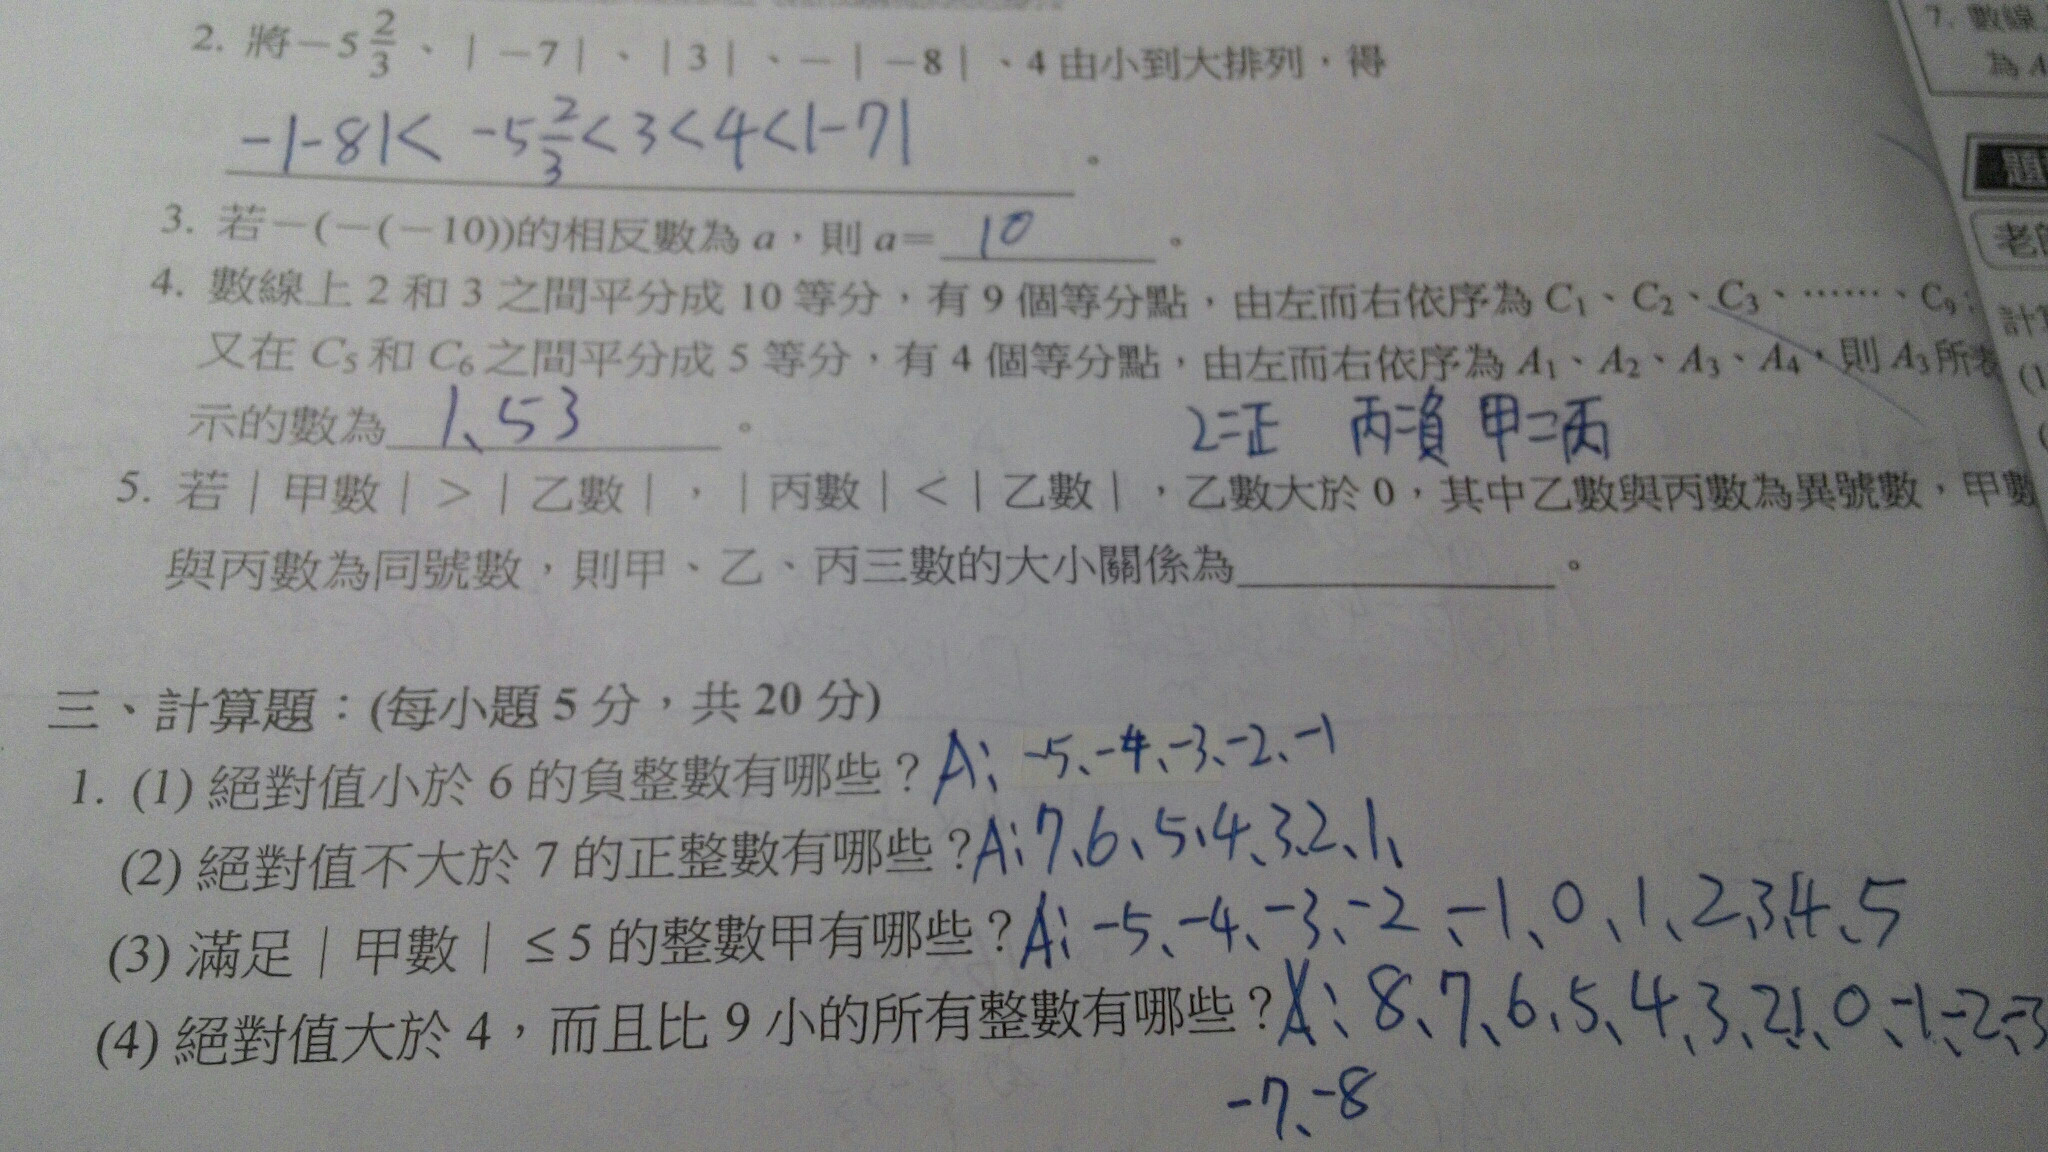 2. 將－5 2/3、|－7|、|3|、－|－8|、4由小到大排列，得
-|-8|< -5 2/3 <3<4<|-7| 。
3. 若－(－(－10))的相反數為 a，則 a= 10 。
4. 數線上 2 和 3 之間平分成 10 等分，有 9 個等分點，由左而右依序為 C₁、C₂、C₃、……、C₉；
又在 C₅ 和 C₆ 之間平分成 5 等分，有 4 個等分點，由左而右依序為 A₁、A₂、A₃、A₄，則 A₃ 所表
示的數為 1、53 。
乙=正 丙=負 甲=丙
5. 若|甲數|>|乙數|，|丙數|<|乙數|，乙數大於 0，其中乙數與丙數為異號數，甲數
與丙數為同號數，則甲、乙、丙三數的大小關係為＿＿＿＿＿＿。
三、計算題：(每小題 5 分，共 20 分)
1. (1) 絕對值小於 6 的負整數有哪些？A: -5、-4、-3、-2、-1
(2) 絕對值不大於 7 的正整數有哪些？A:7、6、5、4、3、2、1、
(3) 滿足|甲數|≤5 的整數甲有哪些？A: -5、-4、-3、-2、-1、0、1、2、3、4、5
(4) 絕對值大於 4，而且比 9 小的所有整數有哪些？A: 8、7、6、5、4、3、2、1、0、-1、-2、-3
-7、-8
7. 數線
為 A
題
老師
計算
(1
(